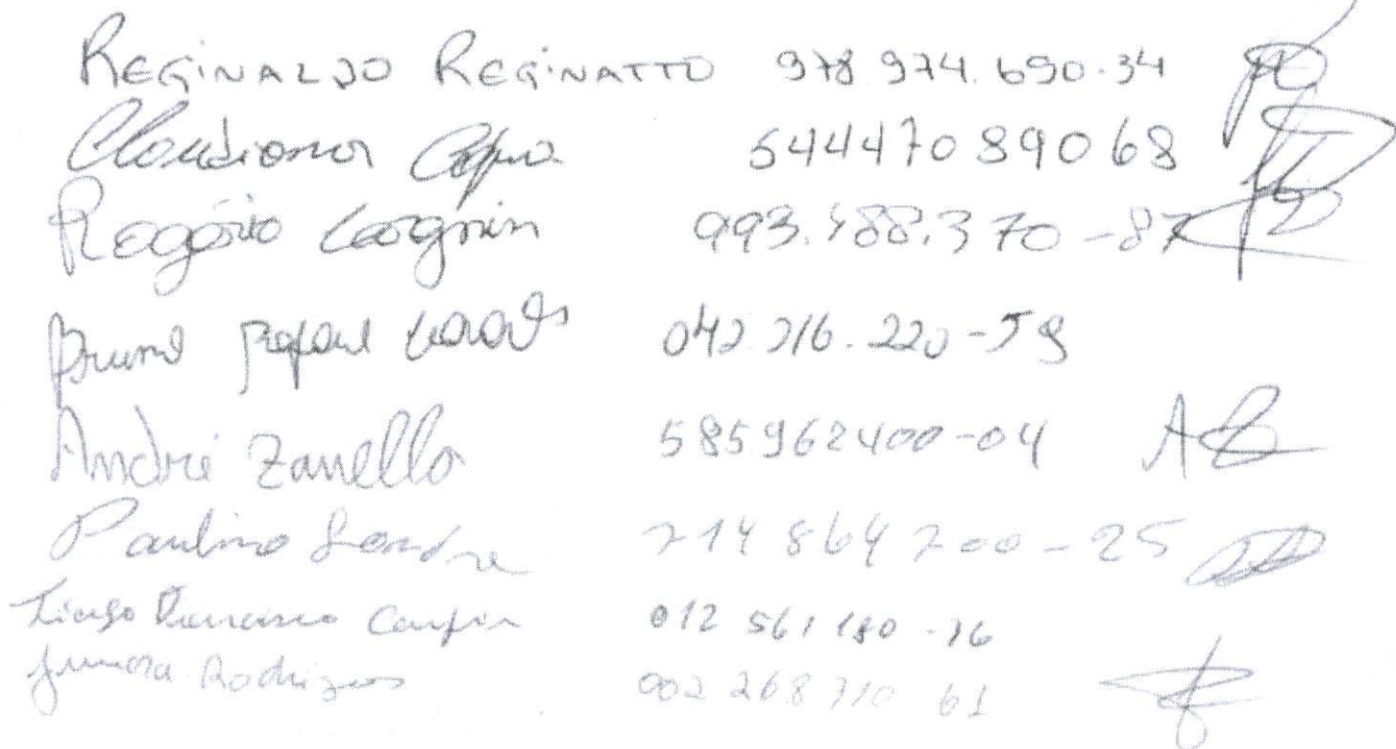 REGINALDO REGINATTO 978.974.690-34
Claudiomir 54447089068
Rogério Cargnin 993.488.370-87
Bruno Rafael 042.216.220-59
André Zanello 585962400-04
Paulino 214864200-25
Tiago Francisco 012 561 180-76
Rodrigues 002 268 710 61